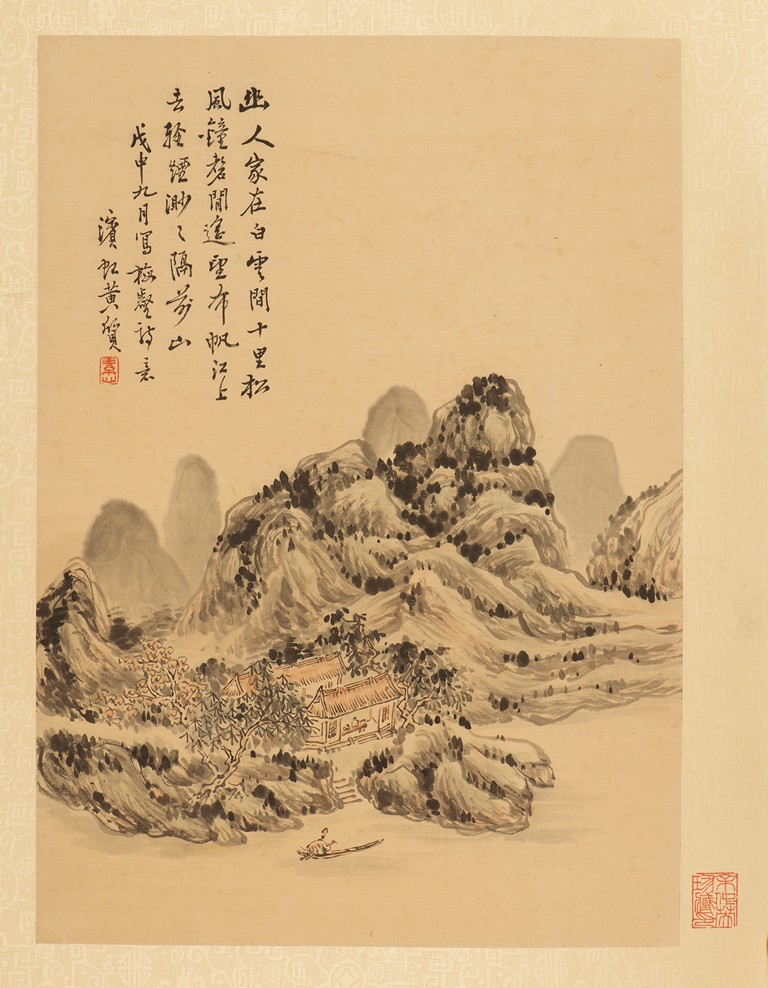 幽人家在白雲間十里松
風鐘磬閒遙望布帆江上
去輕煙渺〻隔前山
戊申九月寫梅壑詩意
濱虹黃質